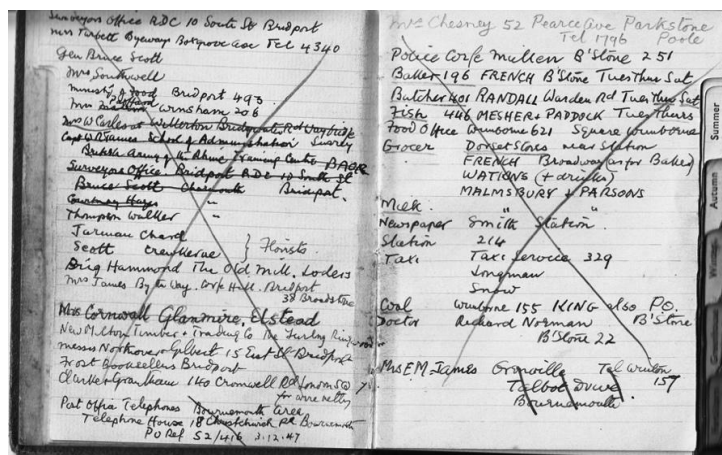 Surveyors Office RDC 10 South St Bridport
Miss Turbett Byeways Boxgrove Ave Tel 4340
Gen Bruce Scott
Mrs Southwell
Ministry of Food Bridport 493
Mrs Winsham 206
Mrs W Carles at Willerton Bridgwater Rd
Capt W R James School of Administration Surrey
British Army of the Rhine Training Centre BAOR
Surveyors Office Bridport RDC 10 South St
Bruce Scott Charmouth Bridport.
Courtney Hays "
Thompson Walker "
Jarman Chard
Scott Crewkerne } Florists
Brig Hammond The Old Mill. Loders
Mrs James By the Way. Corfe Hill. Bridport
38 Broadstone
Mrs Cornwall Glanmire, Elstead
New Milton Timber + Trading Co Ringwood
Messrs Northover + Gilbert 15 East St Bridport
Frost Booksellers Bridport
Clarke + Granham 140 Cromwell Rd London SW7
for wire netting
Post Office Telephones Bournemouth Area
Telephone House 18 Christchurch Rd Bournemouth
PO Ref S2/416 3.12.47
Mrs Chesney 52 Pearce Ave Parkstone
Tel 1796 Poole
Police Corfe Mullen B'Stone 251
Baker 196 FRENCH B'Stone Tues Thu Sat
Butcher 401 RANDALL Warden Rd Tues Thu Sat
Fish 446 MESHER + PADDOCK Tues Thurs
Food Office Wimborne 621 Square Wimborne
Grocer Dorset Stores near Station
FRENCH Broadway (as for Baker)
WATKINS (+ drinks)
MALMSBURY + PARSONS
Milk "
Newspaper Smith Station
Station 214
Taxi Taxi Service 329
Longman
Snow
Coal Wimborne 155 KING also P.O.
B'Stone
Doctor Richard Norman
B'Stone 22
Mrs E M James Grenville Tel Winton
157
Talbot Drive
Bournemouth
Summer
Autumn
Winter